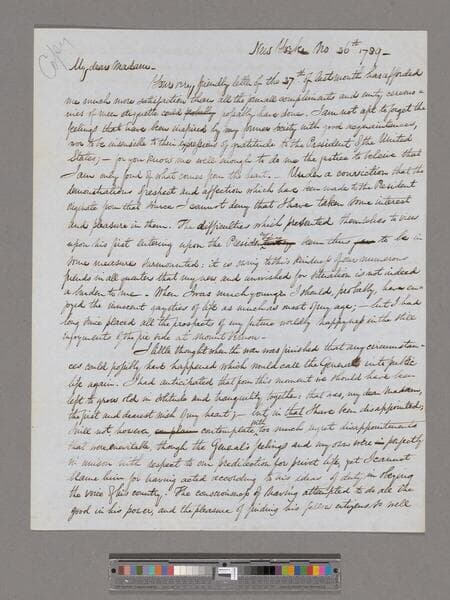 Copy
New York No 26th 1789 -
My dear Madam -
Your very friendly letter of the 27th of last month has afforded
me much more satisfaction than all the formal compliments and empty ceremo-
nies of mere etiquette could possibly have done. I am not apt to forget the
feelings that have been inspired by my former society with good acquaintances,
nor to be insensible to their expressions of gratitude to the President of the United
States; - for you know me well enough to do me the justice to believe that
I am only fond of what comes from the heart. - Under a conviction that the
demonstrations of respect and affection which have been made to the President
originate from that source I cannot deny that I have taken some interest
and pleasure in them. The difficulties which presented themselves to view
upon his first entering upon the Presidency seem thus to be in
some measure surmounted: it is owing to this kindness of our numerous
friends in all quarters that my new and unwished for situation is not indeed
a burden to me. When I was much younger I should, probably, have en-
joyed the innocent gayeties of life as much as most of my age; - but I had
long since placed all the prospects of my future worldly happiness in the still
enjoyments of the fire side at Mount Vernon -
I little thought when the war was finished that any circumstan-
ces could possibly have happened which would call the General into public
life again. I had anticipated that from this moment we should have been
left to grow old in solitude and tranquility together: that was, my dear Madam,
the first and dearest wish of my heart; - but in that I have been disappointed;
I will not, however, contemplate with too much regret disappointments
that were inevitable, though the General's feelings and my own were perfectly
in unison with respect to our predilection for privat life, yet I cannot
blame him for having acted according to his ideas of duty in obeying
the voice of his country. The consciousness of having attempted to do all the
good in his power, and the pleasure of finding his fellow citizens so well